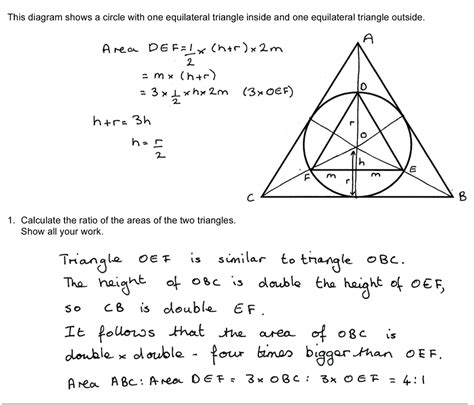 This diagram shows a circle with one equilateral triangle inside and one equilateral triangle outside.
Area DEF = 1/2 × (h+r) × 2m
= m × (h+r)
= 3 × 1/2 × h × 2m (3 × OEF)
h+r = 3h
h = r/2
A
D
r
O
h
F
m
r
m
E
C
B
1. Calculate the ratio of the areas of the two triangles.
Show all your work.
Triangle OEF is similar to triangle OBC.
The height of OBC is double the height of OEF,
so CB is double EF.
It follows that the area of OBC is
double × double - four times bigger than OEF.
Area ABC : Area DEF = 3 × OBC : 3 × OEF = 4:1